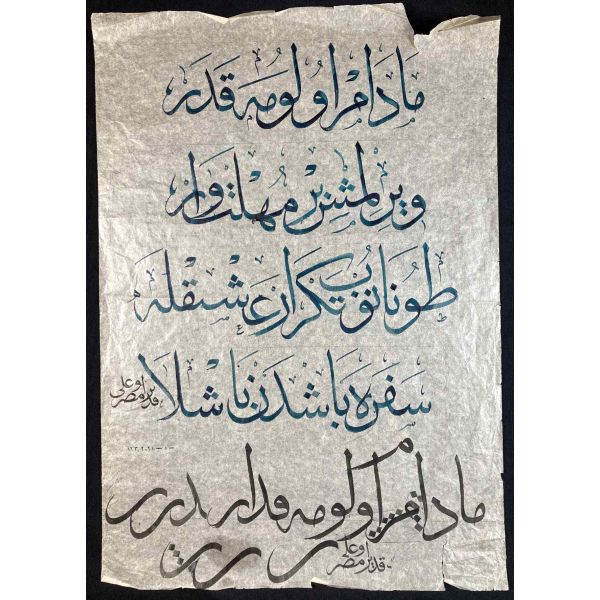 مادام اولومه قدر
ویرلمش بر مهلت وار
طونانوب تکرار عشقله
سفره باشدن باشلا
قدیر مصر اوغلی
مادام اولومه قدر
قدیر مصر اوغلی